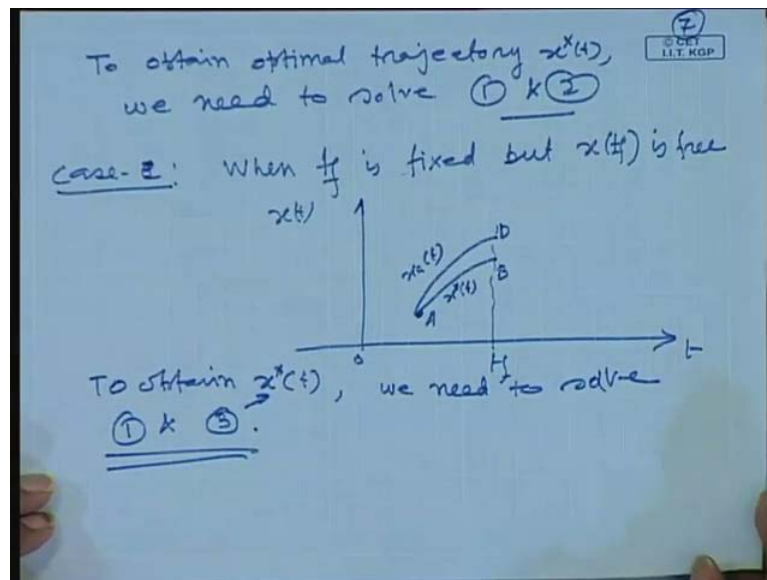 7
© CET
I.I.T. KGP
To obtain optimal trajectory x*(t),
we need to solve ① & ②
Case-2: When tf is fixed but x(tf) is free
x(t)
xa(t)
x*(t)
A
D
B
0
tf
t
To obtain x*(t), we need to solve
① & ③.